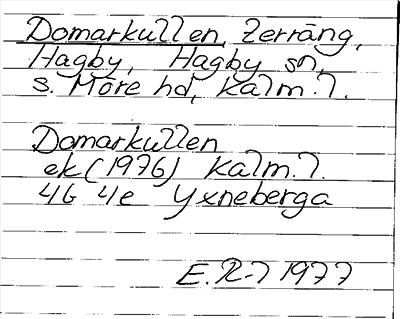 Domarkullen, Terräng,
Hagby, Hagby sn,
S. Möre hd, Kalm. l.
Domarkullen
ek (1976) Kalm. l.
4G 4e Yxneberga
E. R-7 1977